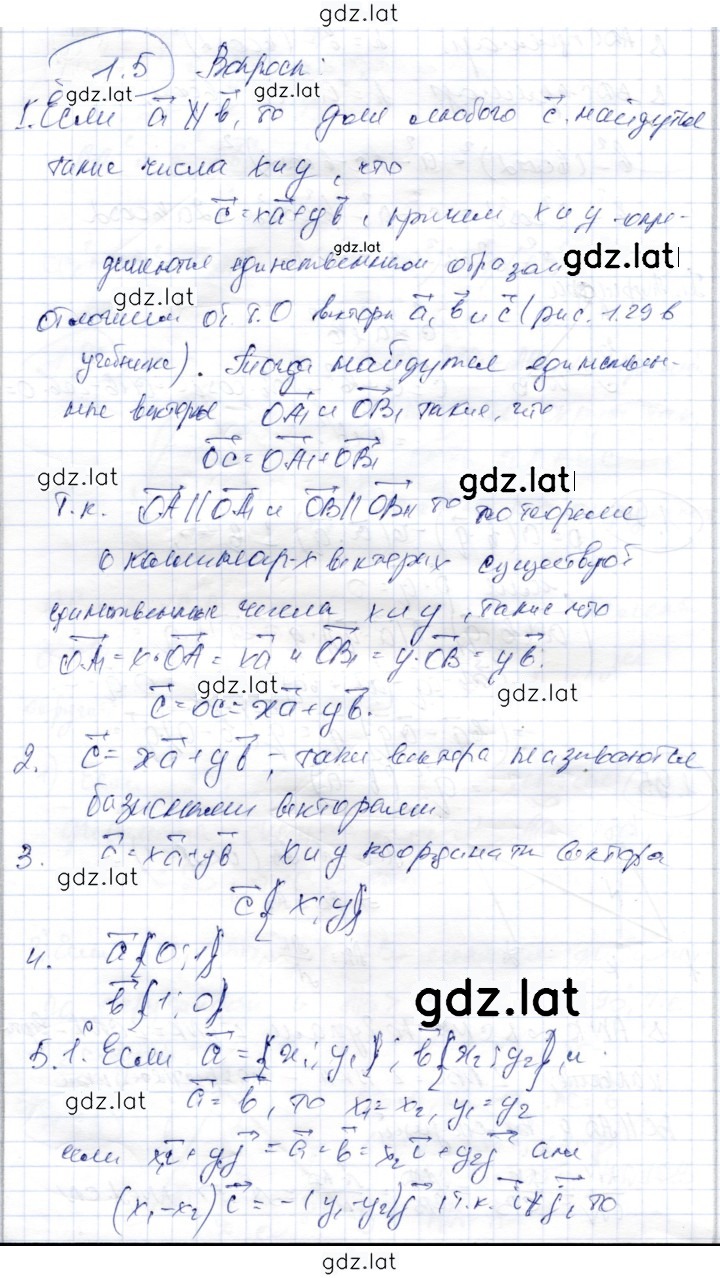 gdz.lat
1.5 Вопросы:
gdz.lat gdz.lat
1. Если a ∦ b, то для любого c найдутся
такие числа x и y, что
c = xa + yb, причем x и y - опре-
gdz.lat
деляются единственным образом gdz.lat
gdz.lat
Отложим от т. O векторы a, b и c (рис. 1.29 в
учебнике). Тогда найдутся единствен-
ные векторы OA₁ и OB₁ такие, что
OC = OA₁ + OB₁
gdz.lat gdz.lat
Т.к. OA || OA₁ и OB || OB₁, то по теореме
о коллинеар-х векторах существуют
единственные числа x и y, такие что
OA₁ = x·OA = xa и OB₁ = y·OB = yb.
gdz.lat gdz.lat
c = OC = xa + yb.
2. c = xa + yb - такие вектора называются
базисными векторами
3. a = xa + yb x и y координаты вектора
gdz.lat
c {x; y}
4. a {0; 1}
b {1; 0}
gdz.lat
5. 1. Если a = {x₁; y₁}; b {x₂; y₂}, и
gdz.lat
a = b, то x₁ = x₂, y₁ = y₂
если x₁i + y₁j = a = b = x₂i + y₂j или
(x₁ - x₂) i = -(y₁ - y₂) j, т.к. i ∦ j, то
gdz.lat